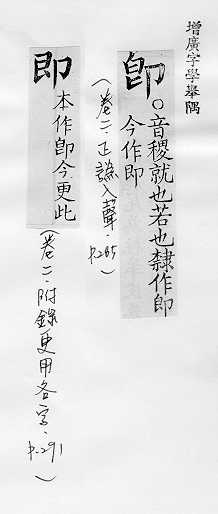 增廣字學舉隅
卽。音稷就也若也隸作即
今作即
(卷二.正譌入聲.p.265)
即 本作卽今更此
(卷一.附錄更用各字.p.291)